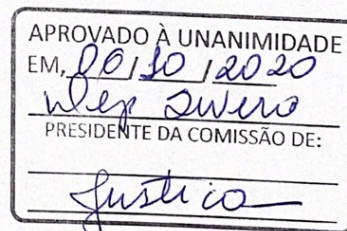 APROVADO À UNANIMIDADE
EM, 06/10/2020
PRESIDENTE DA COMISSÃO DE:
Justiça